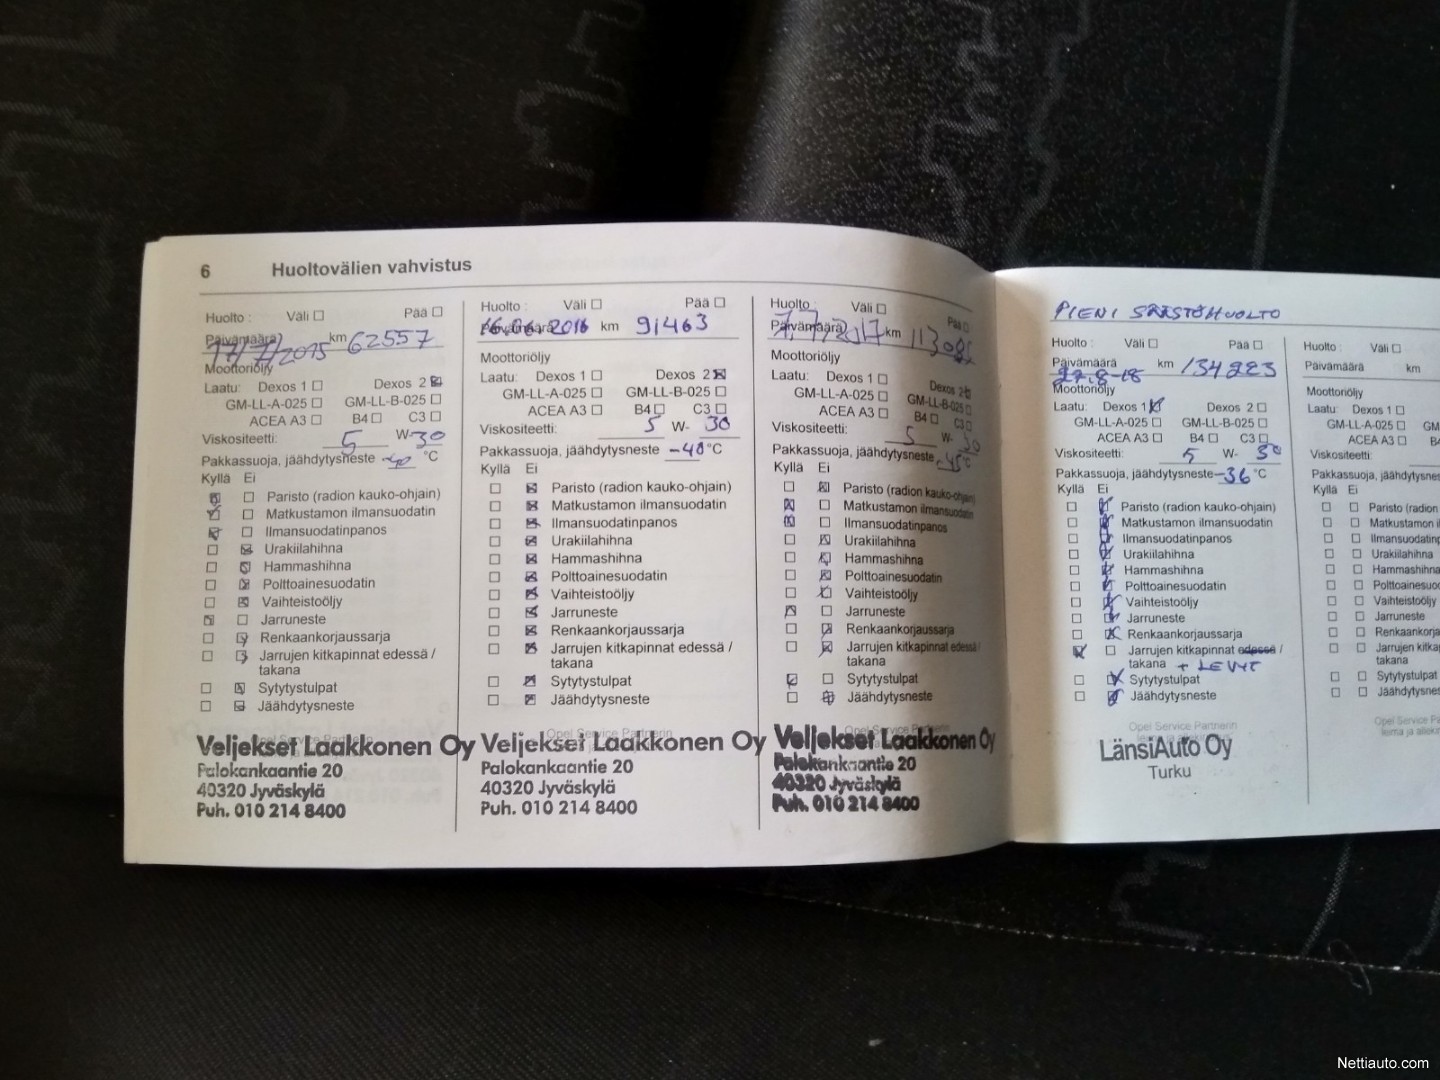 6 Huoltovälien vahvistus
Huolto : Väli Pää
Päivämäärä km
17/7/2015 62557
Moottoriöljy
Laatu: Dexos 1 Dexos 2
GM-LL-A-025 GM-LL-B-025
ACEA A3 B4 C3
Viskositeetti: 5 W-30
Pakkassuoja, jäähdytysneste -40 °C
Kyllä Ei
Paristo (radion kauko-ohjain)
Matkustamon ilmansuodatin
Ilmansuodatinpanos
Urakiilahihna
Hammashihna
Polttoainesuodatin
Vaihteistoöljy
Jarruneste
Renkaankorjaussarja
Jarrujen kitkapinnat edessä /
takana
Sytytystulpat
Jäähdytysneste
Veljekset Laakkonen Oy
Palokankaantie 20
40320 Jyväskylä
Puh. 010 214 8400
Huolto : Väli Pää
Päivämäärä km
16.06.2016 91463
Moottoriöljy
Laatu: Dexos 1 Dexos 2
GM-LL-A-025 GM-LL-B-025
ACEA A3 B4 C3
Viskositeetti: 5 W- 30
Pakkassuoja, jäähdytysneste -40 °C
Kyllä Ei
Paristo (radion kauko-ohjain)
Matkustamon ilmansuodatin
Ilmansuodatinpanos
Urakiilahihna
Hammashihna
Polttoainesuodatin
Vaihteistoöljy
Jarruneste
Renkaankorjaussarja
Jarrujen kitkapinnat edessä /
takana
Sytytystulpat
Jäähdytysneste
Veljekset Laakkonen Oy
Palokankaantie 20
40320 Jyväskylä
Puh. 010 214 8400
Huolto : Väli Pää
Päivämäärä km
7.7.2017
Moottoriöljy
Laatu: Dexos 1 Dexos 2
GM-LL-A-025 GM-LL-B-025
ACEA A3 B4 C3
Viskositeetti: 5 W- 30
Pakkassuoja, jäähdytysneste °C
Kyllä Ei
Paristo (radion kauko-ohjain)
Matkustamon ilmansuodatin
Ilmansuodatinpanos
Urakiilahihna
Hammashihna
Polttoainesuodatin
Vaihteistoöljy
Jarruneste
Renkaankorjaussarja
Jarrujen kitkapinnat edessä /
takana
Sytytystulpat
Jäähdytysneste
Veljekset Laakkonen Oy
Palokankaantie 20
40320 Jyväskylä
Puh. 010 214 8400
PIENI SÄÄSTÖHUOLTO
Huolto : Väli Pää
Päivämäärä km
27.8-18 134223
Moottoriöljy
Laatu: Dexos 1 Dexos 2
GM-LL-A-025 GM-LL-B-025
ACEA A3 B4 C3
Viskositeetti: 5 W- 30
Pakkassuoja, jäähdytysneste -36 °C
Kyllä Ei
Paristo (radion kauko-ohjain)
Matkustamon ilmansuodatin
Ilmansuodatinpanos
Urakiilahihna
Hammashihna
Polttoainesuodatin
Vaihteistoöljy
Jarruneste
Renkaankorjaussarja
Jarrujen kitkapinnat edessä /
takana + LEVYT
Sytytystulpat
Jäähdytysneste
Opel Service Partnerin
LänsiAuto Oy
Turku
Huolto : Väli
Päivämäärä km
Moottoriöljy
Laatu: Dexos 1
GM-LL-A-025 GM
ACEA A3
Viskositeetti:
Pakkassuoja, jäähdytysnes
Kyllä Ei
Paristo (radion
Matkustamon il
Ilmansuodatinp
Urakiilahihna
Hammashihna
Polttoainesuod
Vaihteistoöljy
Jarruneste
Renkaankorja
Jarrujen kitka
takana
Sytytystulpat
Jäähdytysnes
Opel Service Pa
Nettiauto.com